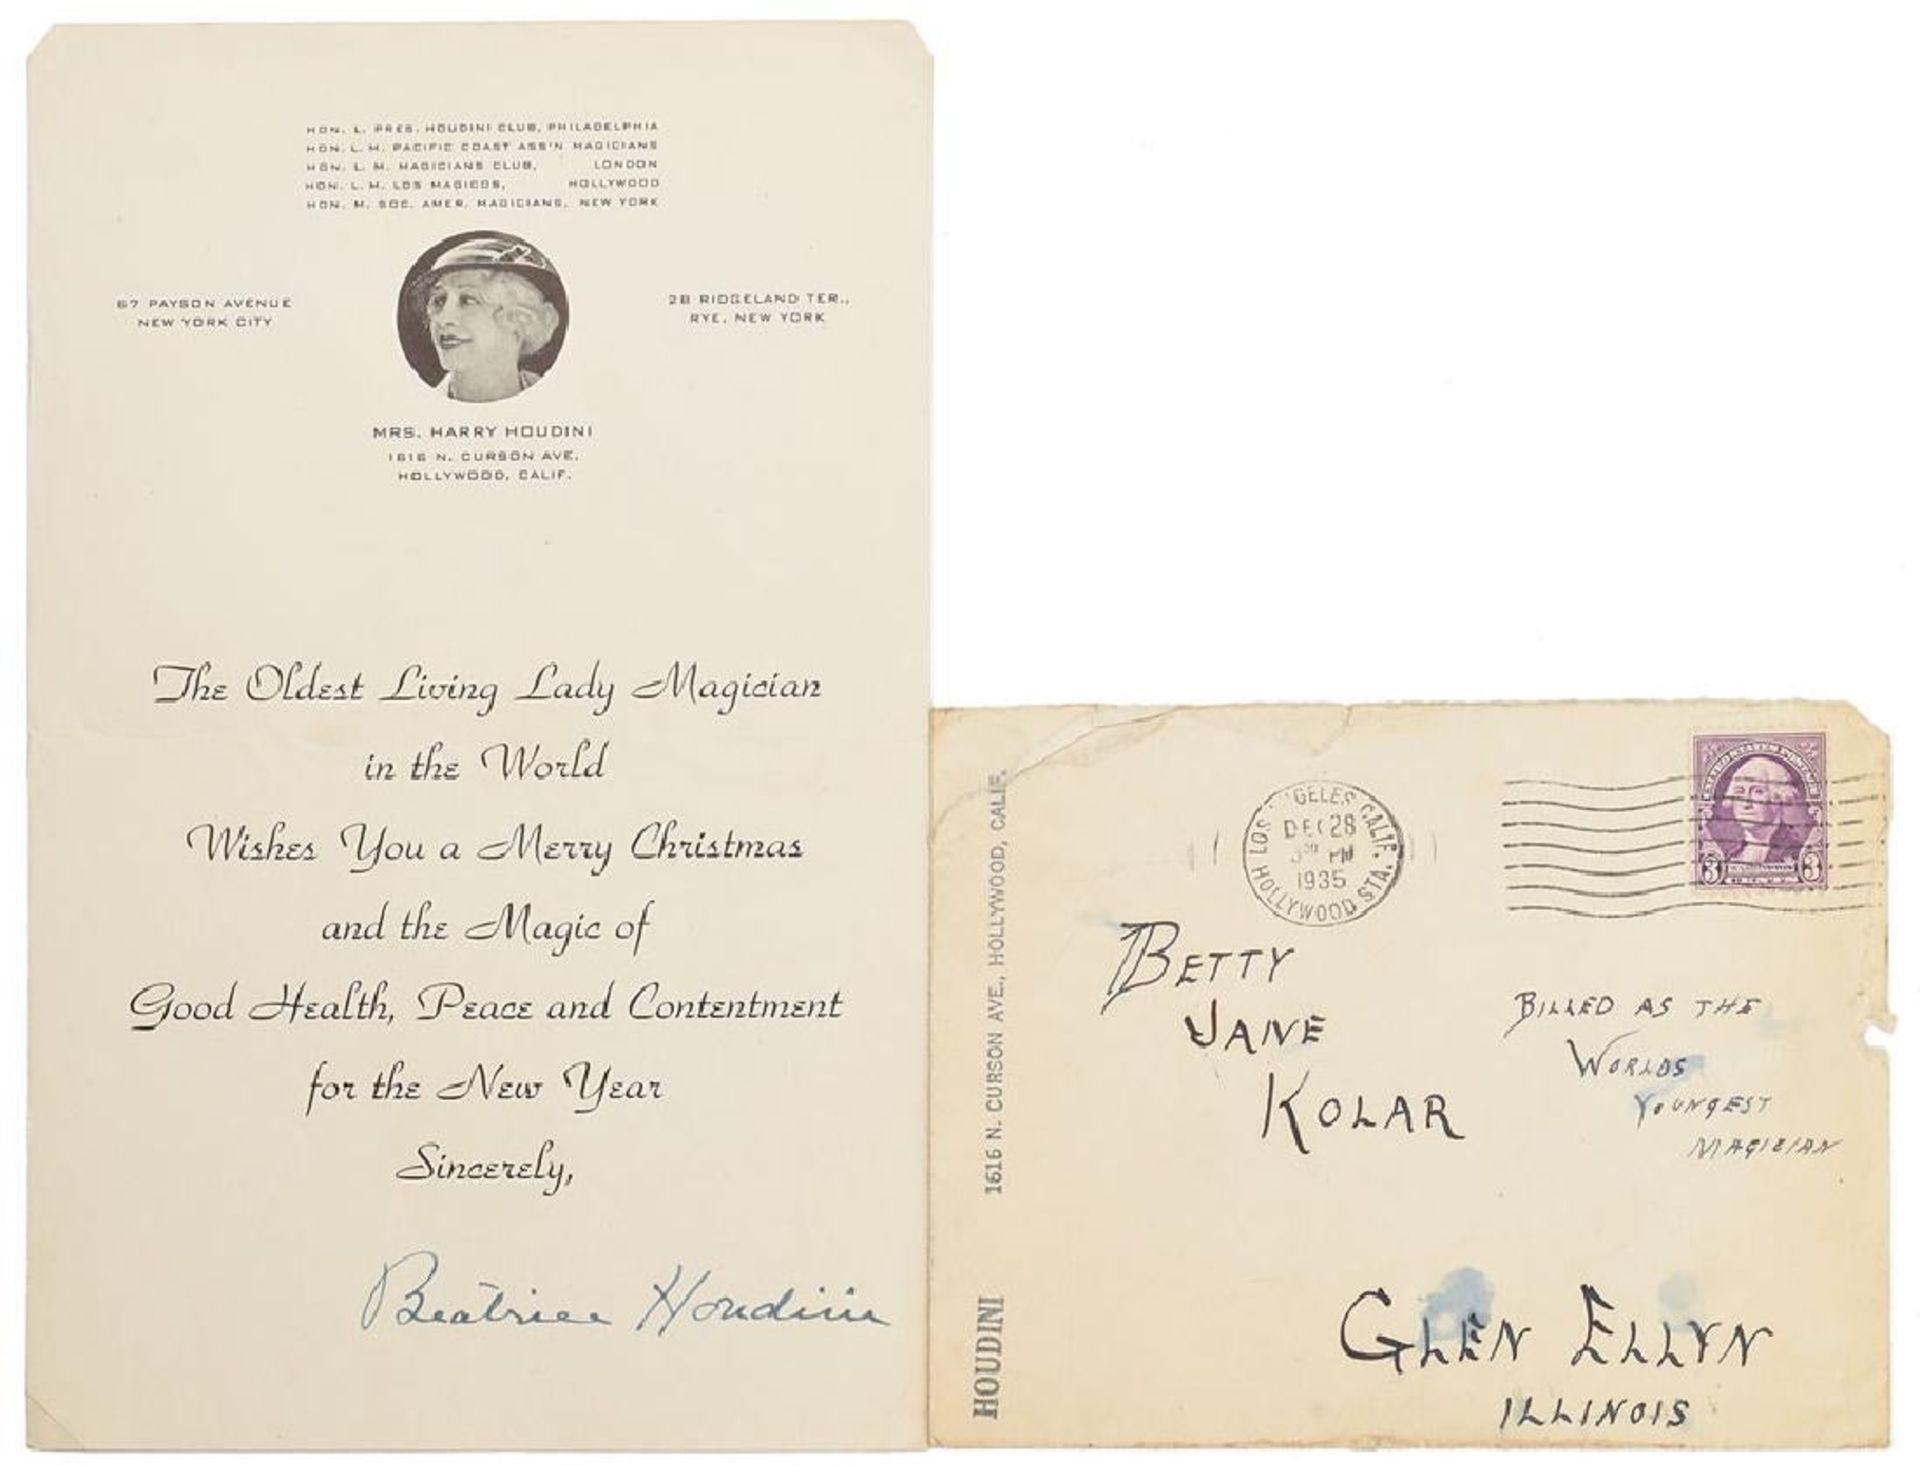 HON. L. PRES. HOUDINI CLUB, PHILADELPHIA
HON. L. M. PACIFIC COAST ASS'N MAGICIANS
HON. L. M. MAGICIANS CLUB, LONDON
HON. L. M. LOS MAGICOS, HOLLYWOOD
HON. M. SOC. AMER. MAGICIANS, NEW YORK
67 PAYSON AVENUE
NEW YORK CITY
28 RIDGELAND TER.,
RYE, NEW YORK
MRS. HARRY HOUDINI
1616 N. CURSON AVE.
HOLLYWOOD, CALIF.
The Oldest Living Lady Magician
in the World
Wishes You a Merry Christmas
and the Magic of
Good Health, Peace and Contentment
for the New Year
Sincerely,
Beatrice Houdini
HOUDINI 1616 N. CURSON AVE., HOLLYWOOD, CALIF.
LOS ANGELES, CALIF.
DEC 28
PM
1935
HOLLYWOOD STA.
3 3
BETTY
JANE
KOLAR
BILLED AS THE
WORLDS
YOUNGEST
MAGICIAN
GLEN ELLYN
ILLINOIS